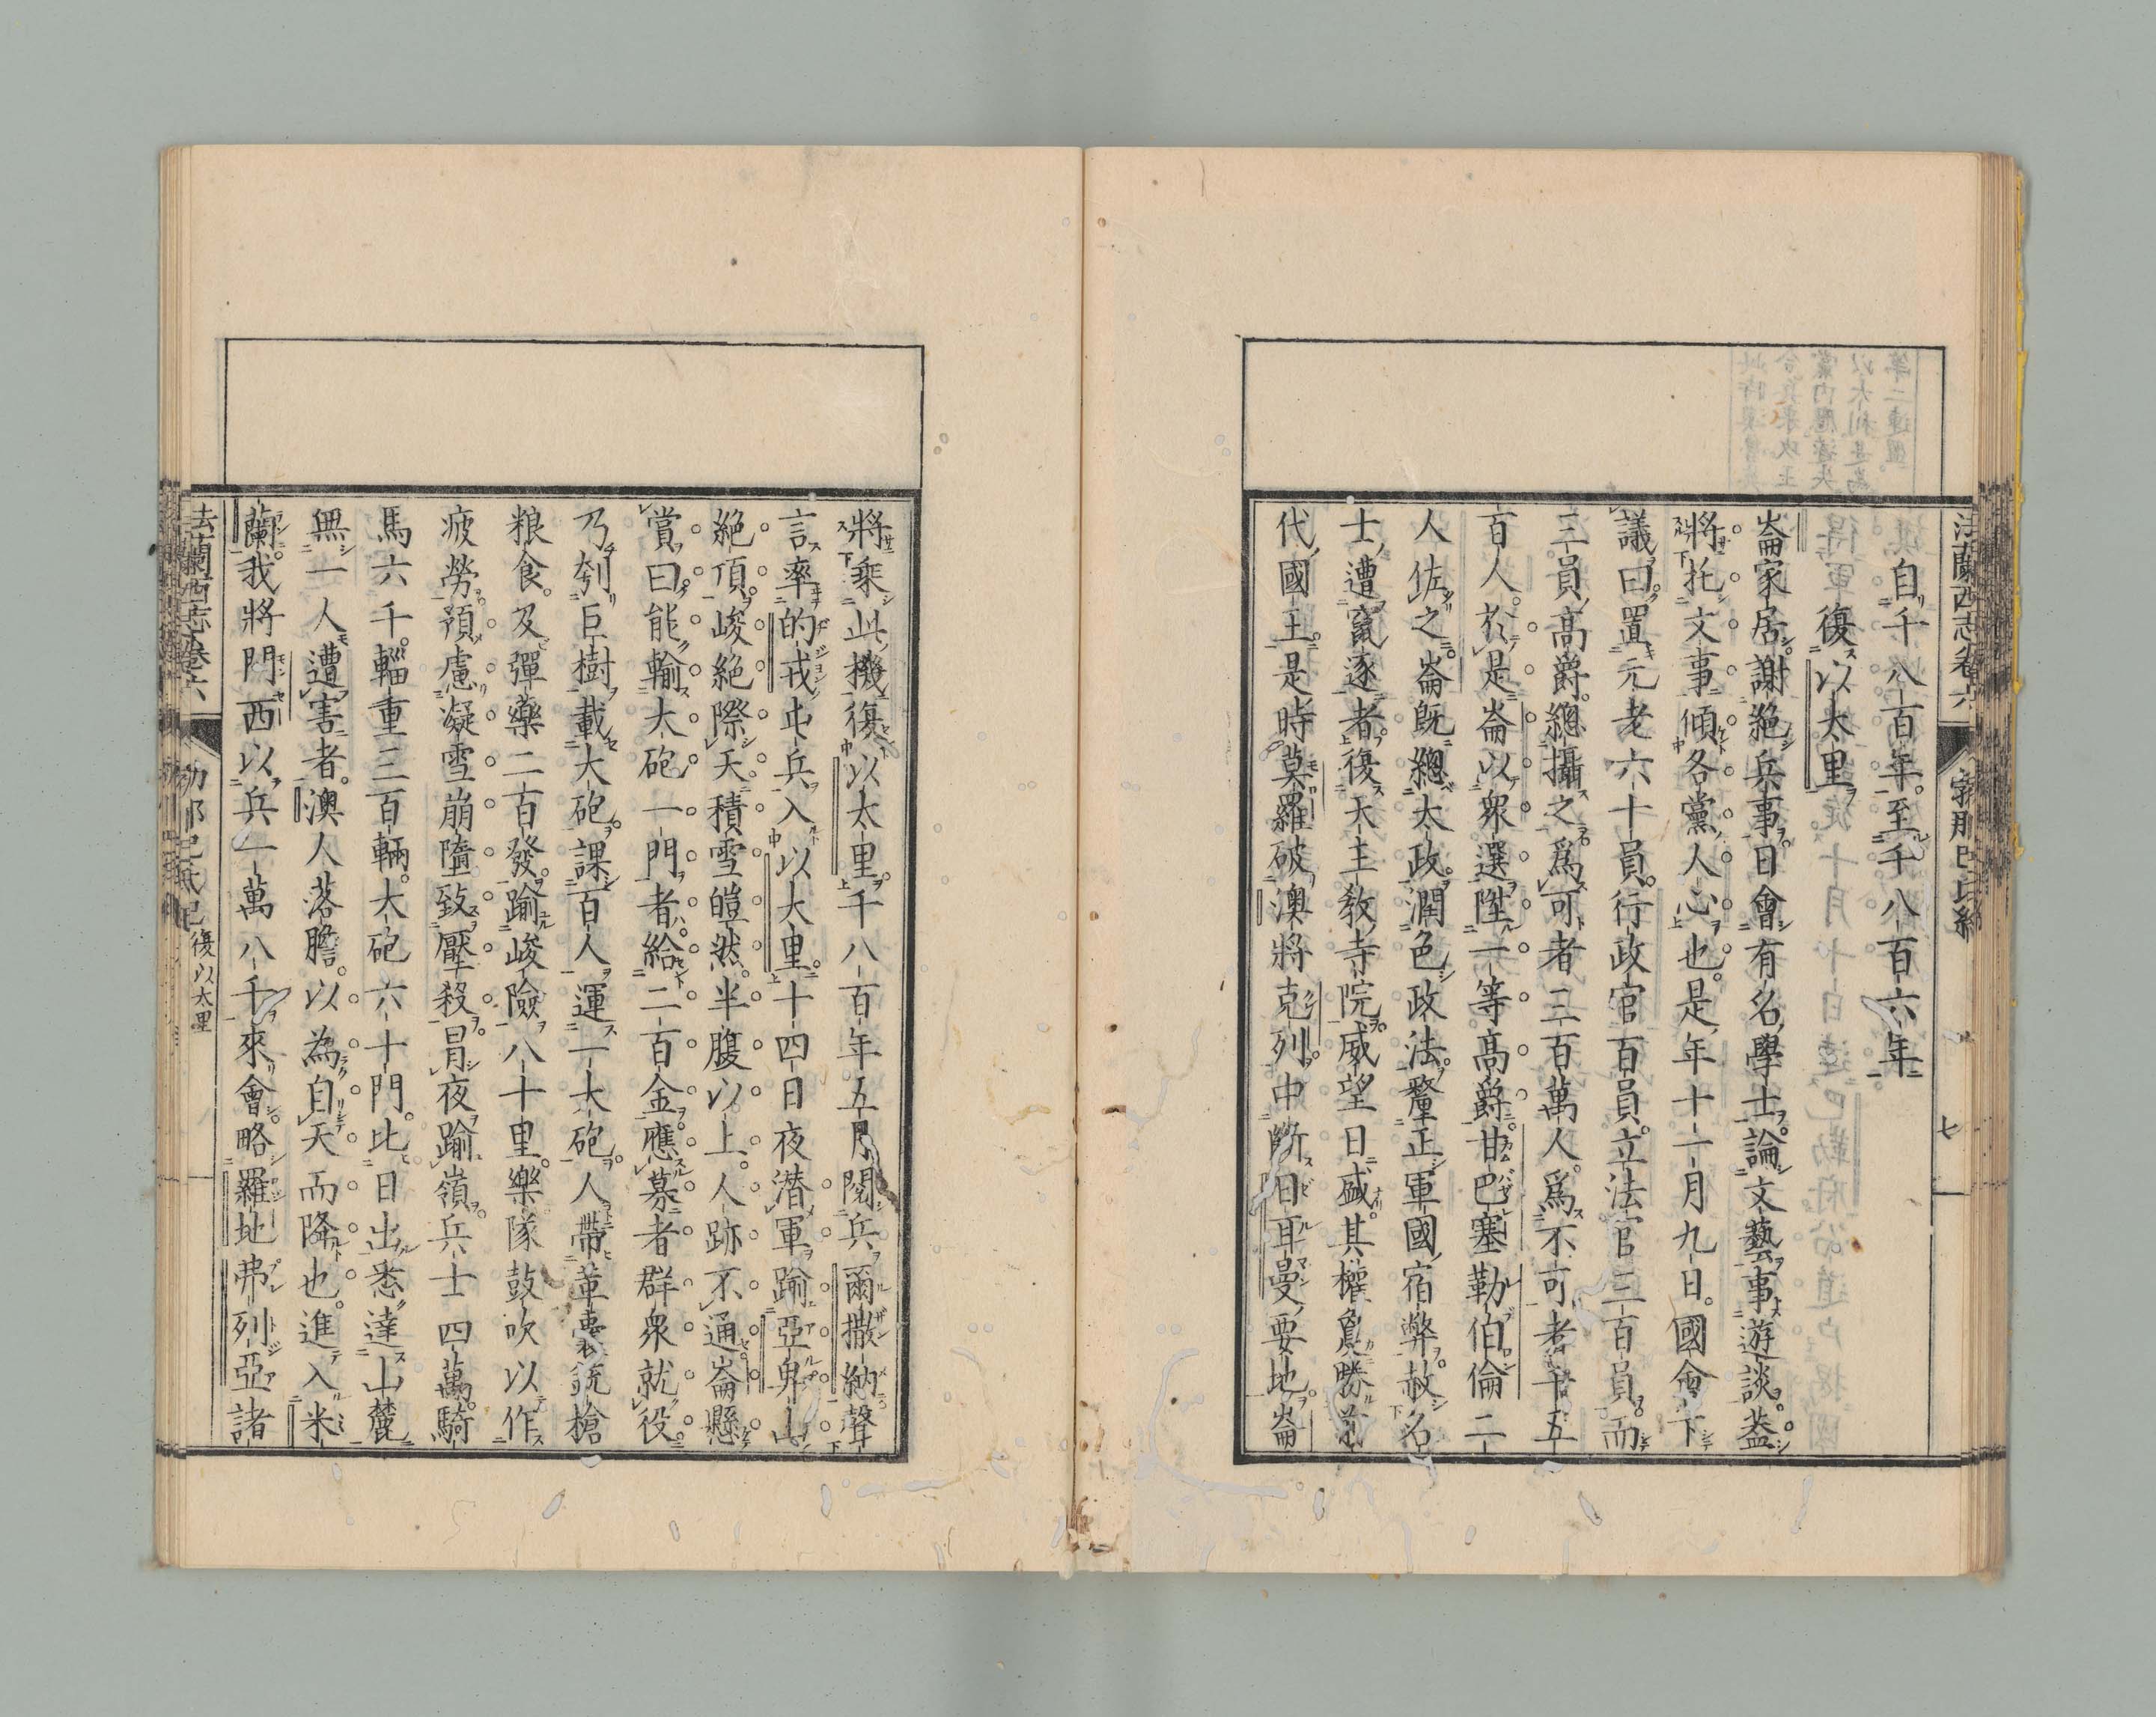 法蘭西志卷六
七
自千八百年至千八百六年
復以太里
崙家居謝絶兵事日會有名學士論文藝事遊談蓋
將托文事傾各黨人心也是年十一月九日國會下
議曰置元老六十員行政官百員立法官三百員而
三員高爵總攝之爲可者三百萬人爲不可者千五
百人於是崙以衆選陞一等高爵甘巴塞勒伯倫二
人佐之崙既總大政潤色政法釐正軍國宿弊赦名
士遭竄逐者復天主教寺院威望日盛其權
代國王是時莫羅破澳將克列中斷日耳曼要地崙
將乘此機復以太里千八百年五月閱兵爾撒納聲
言率的戎屯兵入以太里十四日夜潜軍踰亞卑山
絶頂峻絶際天積雪皚然半腹以上人跡不通崙懸
賞曰能輸大砲一門者給二百金應募者群衆就役
乃刳巨樹載大砲課百人運一大砲人帶革嚢銃槍
粮食及彈藥二百發踰峻險八十里樂隊鼓吹以作
疲勞預慮凝雪崩墮致壓殺冒夜踰嶺兵士四萬騎
馬六千輜重三百輛大砲六十門比日出悉達山麓
無一人遭害者澳人落膽以為自天而降也進入米
蘭我將門西以兵一萬八千來會略羅地弗列亞諸
法蘭西志卷六
復以太里